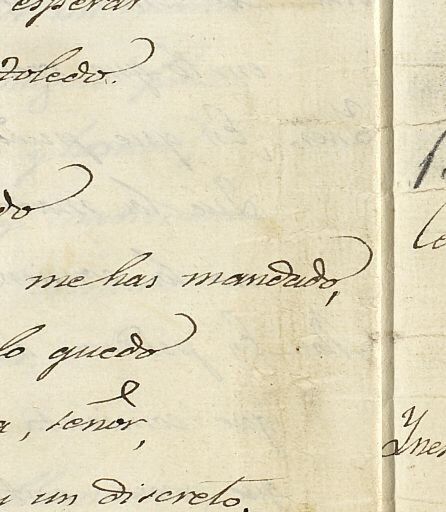 esperar
toledo.
do
me has mandado,
lo quedo
a, señor,
y un discreto.
Ynes